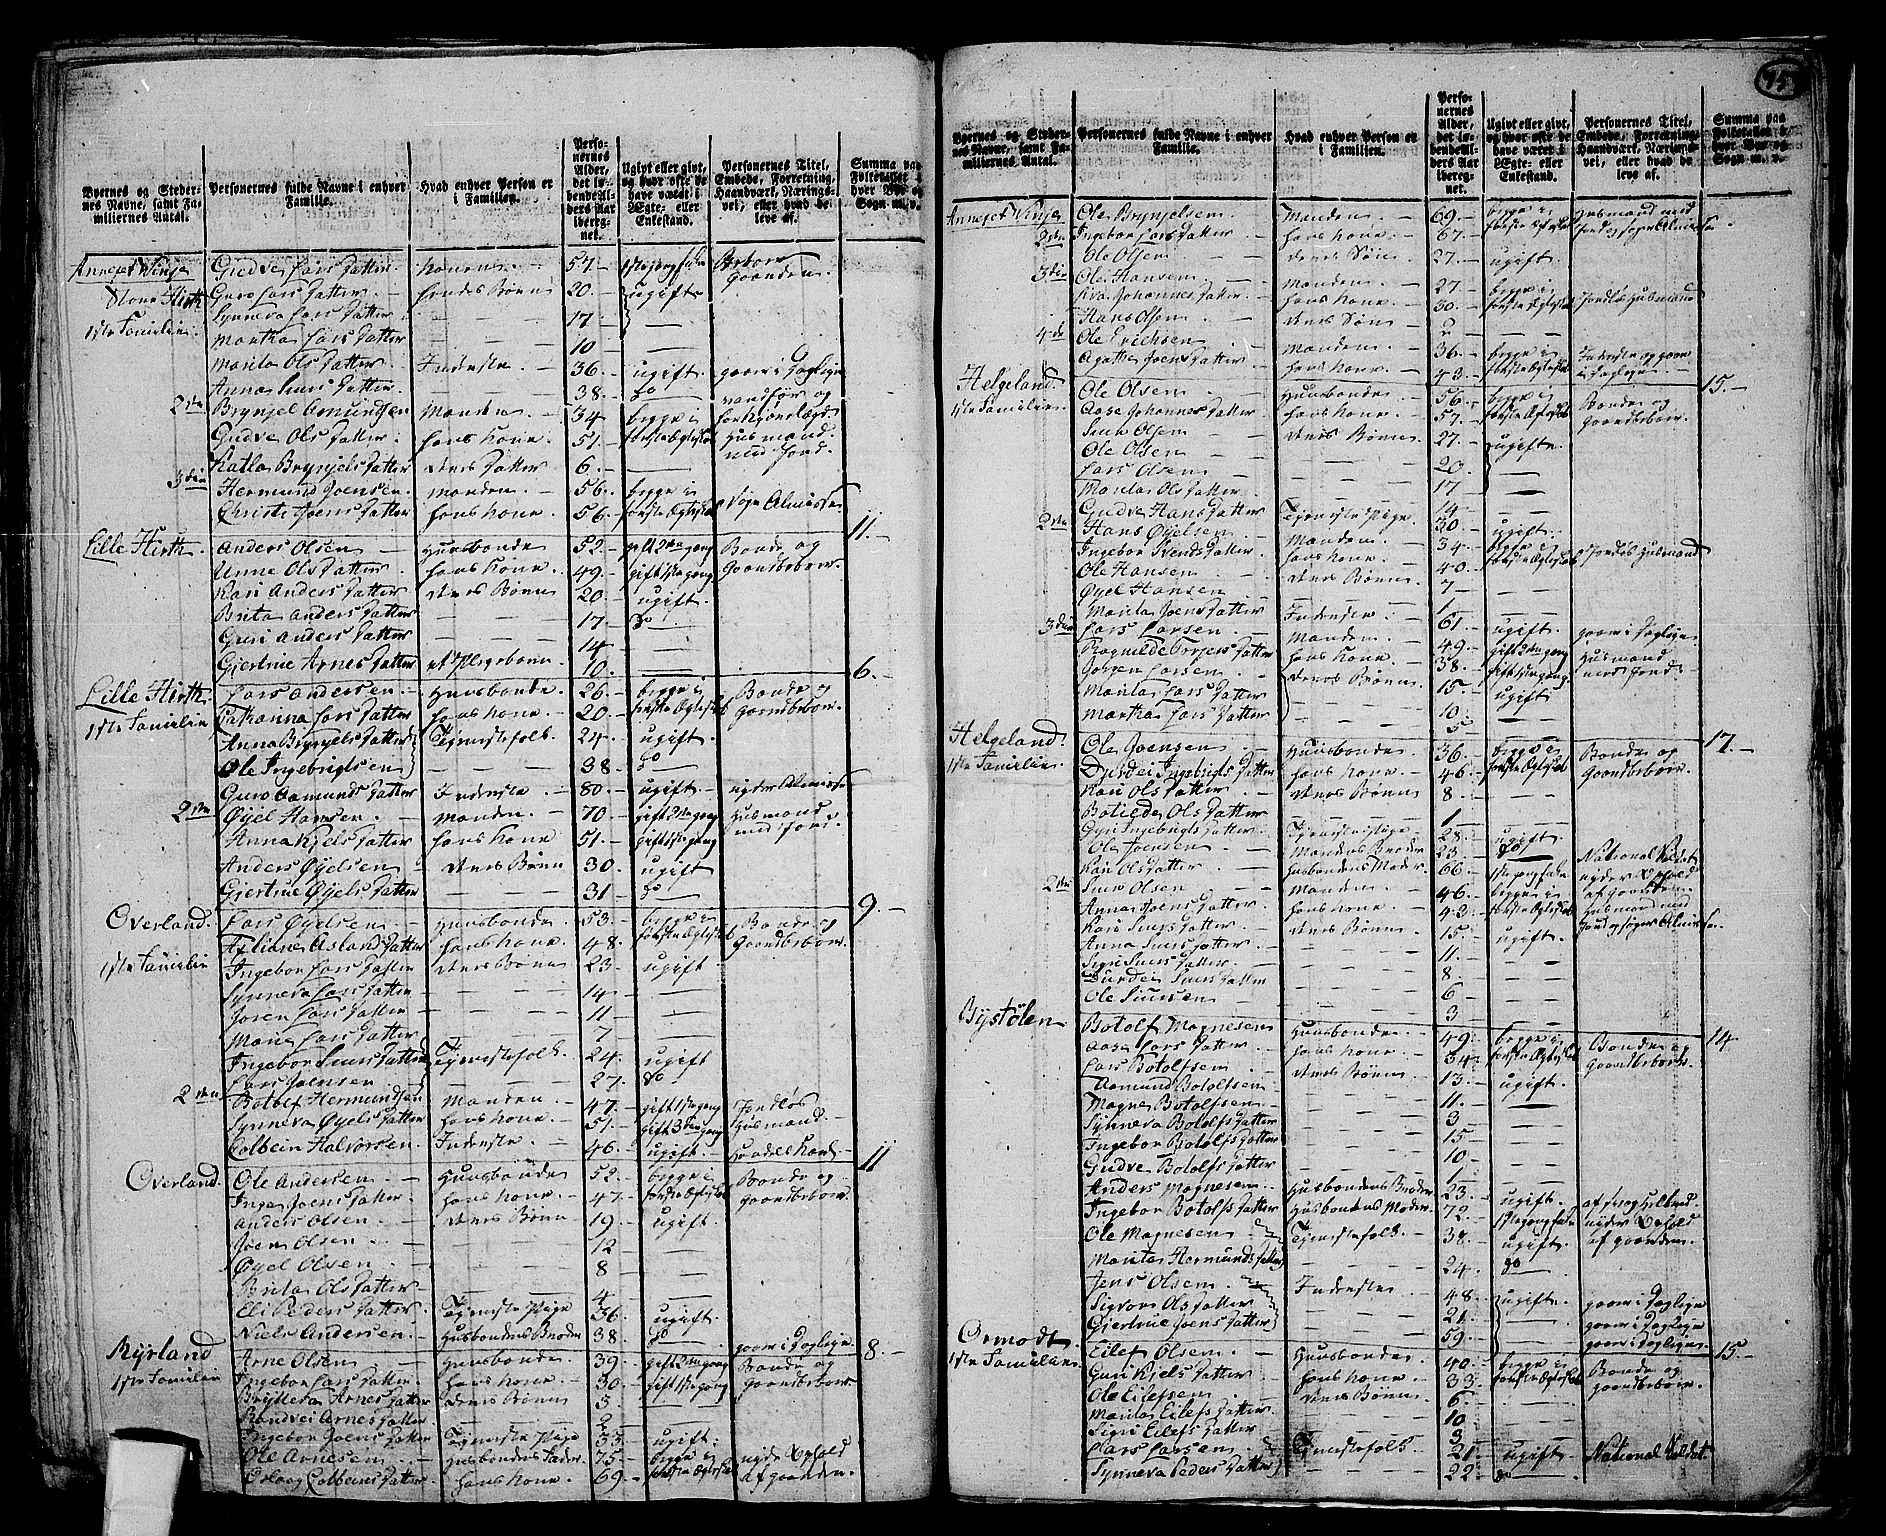 15
Byernes og Steder-
nes Navne, samt Fa-
miliernes Antal.
Personernes fulde Navne i enhver
Familie.
Hvad enhver Person er
i Familien.
Perso-
nernes
Alder,
det in-
dende Al-
ders Aar
iberegnet.
Ugivt eller givt,
og hvor ofte de
have været i
Ægte- eller
Enkestand.
Personernes Titel,
Embede, Forretning,
Haandværk, Nærings-
vei, eller hvad de
leve af.
Summa paa
Folketallet i
hver Bye og
Sogn m. v.
Annexet Vinje Gudve Lars Datter Konen 57 1ste gang Enke
Store Hirth Guro Lars Datter hendes Børn 20 ugift
1ste Familie Synneva Lars Datter 17
Martha Lars Datter 10
Marita Ols Datter Inderste 36 ugift
Anna Siurs Datter 38 do
2den Brynjel Amundsen Manden 34 begge i
Gudve Ols Datter hans Kone 51 første Ægteskab
Katla Brynjels Datter deres Datter 6
3die Hermund Joensen Manden 56 begge i
Christi Joens Datter hans Kone 56 første Ægteskab 11
Lille Hirth Anders Olsen Huusbonde 52 gift 2den gang Bonde og
Unne Ols Datter hans Kone 49 gift 1ste gang Gaardbeboer
Kari Anders Datter deres Børn 20 ugift
Brita Anders Datter 17 do
Guri Anders Datter 14
Giertrue Arnes Datter et Plejebarn 10 6
Lille Hirth Lars Andersen Huusbonde 26 begge i Bonde og
1ste Familie Cathanna Lars Datter hans Kone 20 første Ægteskab Gaardbeboer
Anna Brynjels Datter Tjenestefolk 24 ugift
Ole Ingebrigtsen 38 do
Guro Aamunds Datter Inderste 80 ugift nyder Almisse
2den Øyel Hansen Manden 70 gift 2den gang Husmand
Anna Kjels Datter hans Kone 51 gift 1ste gang med Jord
Anders Øyelsen deres Børn 30 ugift
Giertrue Øyels Datter 31 do 9
Overland Lars Øyelsen Huusbonde 53 begge i Bonde og
Asland Datter hans Kone 48 første Ægteskab Gaardbeboer
1ste Familie Ingebor Lars Datter deres Børn 23 ugift
Synneva Lars Datter 14
Joren Lars Datter 11
Mari Lars Datter 7
Ingebor Siurs Datter Tjenestefolk 24 ugift
Lars Joensen 27 do
2den Botolf Hermundsen Manden 47 gift 1ste gang Jordløs
Synneva Øyels Datter hans Kone 51 gift 3die gang Husmand
Colbein Halvorsen Inderste 46 ugift 11
Overland Ole Andersen Huusbonde 52 begge i Bonde og
Inga Joens Datter hans Kone 47 første Ægteskab Gaardbeboer
Anders Olsen deres Børn 19 ugift
Joen Olsen 12
Øyel Olsen 8
Brita Ols Datter 4
Eli Peders Datter Tjeneste Pige 36 ugift
Niels Andersen Husbondens Broder 38 do gaaer i Dagleje 8
Rysland Arne Olsen Huusbonde 39 gift 2den gang Bonde og
1ste Familie Ingebor Lars Datter hans Kone 30 gift 1ste gang Gaardbeboer
Brytteva Arnes Datter deres Børn 3
Randvei Arnes Datter 2
Ingebor Joens Datter Tjeneste Pige 33 ugift
Ole Arnesen Husbondens Fader 75 begge i nyder Ophold
Colbeins Datter hans Kone 69 første Ægteskab af Gaarden
Byernes og Steder-
nes Navne, samt Fa-
miliernes Antal.
Personernes fulde Navne i enhver
Familie.
Hvad enhver Person er
i Familien.
Perso-
nernes
Alder,
det in-
dende Al-
ders Aar
iberegnet.
Ugivt eller givt,
og hvor ofte de
have været i
Ægte- eller
Enkestand.
Personernes Titel,
Embede, Forretning,
Haandværk, Nærings-
vei, eller hvad de
leve af.
Summa paa
Folketallet i
hver Bye og
Sogn m. v.
Annexet Vinje Ole Brynjelsen Manden 69 begge i Husmand med
2den Ingebor Lars Datter hans Kone 67 første Ægteskab Jord og søger Almisse
Ole Olsen deres Søn 27 ugift
3die Ole Hansen Manden 27 begge i
Siva Johannes Datter hans Kone 30 første Ægteskab Jordløs Husmand
Hans Olsen deres Søn 2
4de Ole Erichsen Manden 36 begge i Inderste og gaaer
Agatha Joens Datter hans Kone 43 første Ægteskab i Dagleje 15
Helgeland Ole Olsen Huusbonde 56 begge i Bonde og
1ste Familie Aase Johannes Datter hans Kone 57 første Ægteskab Gaardbeboer
Siur Olsen deres Børn 27 ugift
Ole Olsen 20
Lars Olsen 17
Marita Ols Datter 14
Gudve Hans Datter Tjeneste Pige 30 ugift
2den Hans Øyelsen Manden 34 begge i Jordløs Husmand
Ingebor Svends Datter hans Kone 40 første Ægteskab
Ole Hansen deres Børn 7
Øyel Hansen 1
Marita Joens Datter Inderste 61 ugift gaaer i Dagleje
3die Lars Larsen Manden 49 gift 2den gang Husmand
Ragnilde Datter hans Kone 38 gift 1ste gang med Jord
Larsen deres Børn 15 ugift
Marita Lars Datter 10
Martha Lars Datter 5 17
Helgeland Ole Joensen Huusbonde 36 begge i Bonde og
1ste Familie Durdei Ingebrigts Datter hans Kone 46 første Ægteskab Gaardbeboer
Kari Ols Datter deres Børn 8
Botilda Ols Datter 1
Gyri Ingebrigts Datter Tjeneste Pige 28 ugift
Ole Joensen Mandens Broder 23 do National Soldat
Kari Ols Datter Husbondens Moder 66 1ste gang Enke nyder Ophold af Gaarden
2den Siur Olsen Manden 46 begge i Husmand med
Anna Joens Datter hans Kone 43 første Ægteskab Jord og søger Almisse
Kari Siurs Datter deres Børn 15 ugift
Anna Siurs Datter 11
Sigri Siurs Datter 8
Durdei Siurs Datter 6
Ole Siursen 3 14
Bystølen Botolf Magnesen Huusbonde 49 begge i Bonde og
Aase Lars Datter hans Kone 34 første Ægteskab Gaardbeboer
Lars Botolfsen deres Børn 13 ugift
Aamund Botolfsen 11
Magne Botolfsen 3
Synneva Botolfs Datter 15
Ingebor Botolfs Datter 10
Gudve Botolfs Datter 1
Anders Magnesen Husbondens Broder 23 ugift
Ingebor Botolfs Datter Husbondens Moder 72 1ste gang Enke nyder Ophold
Ole Magnesen Tjenestefolk 38 ugift af Gaarden
Marita Hermunds Datter 24 do
Jens Olsen Inderste 48 ugift gaaer i Dagleje
Sigvor Ols Datter 21 gaaer i Dagleje
Giertrue Joens Datter 59 gaaer i Dagleje 15
Ormodt Eilef Olsen Huusbonde 40 begge i Bonde og
1ste Familie Guri Kjels Datter hans Kone 33 første Ægteskab Gaardbeboer
Ole Eilefsen deres Børn 6
Marita Eilefs Datter 10
Sigri Eilefs Datter 3
Lars Larsen Tjenestefolk 21 ugift National Soldat
Synneva Peders Datter 22 do